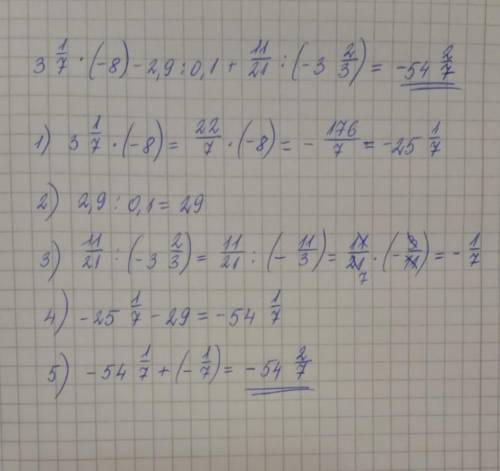 3 1/7 · (-8) - 2,9 : 0,1 + 11/21 : (-3 2/3) = -54 2/7
1) 3 1/7 · (-8) = 22/7 · (-8) = - 176/7 = -25 1/7
2) 2,9 : 0,1 = 29
3) 11/21 : (-3 2/3) = 11/21 : (- 11/3) = 11/21 7 · (- 3/11) = - 1/7
4) -25 1/7 - 29 = -54 1/7
5) -54 1/7 + (- 1/7) = -54 2/7